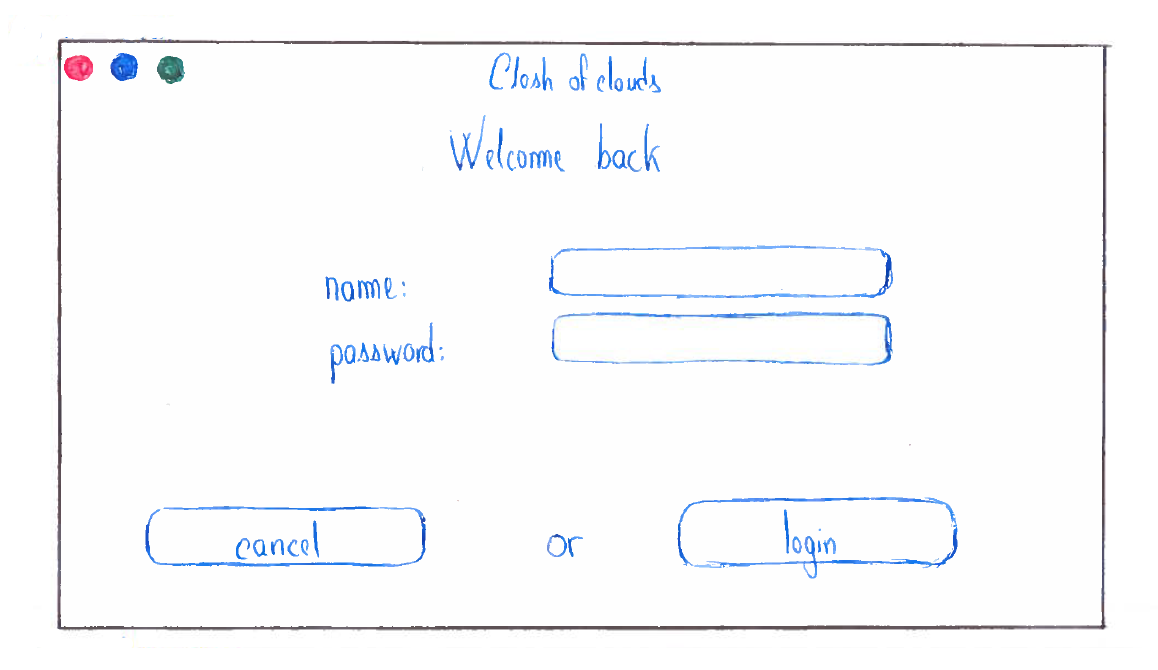 Clash of clouds
Welcome back
name:
password:
cancel or login